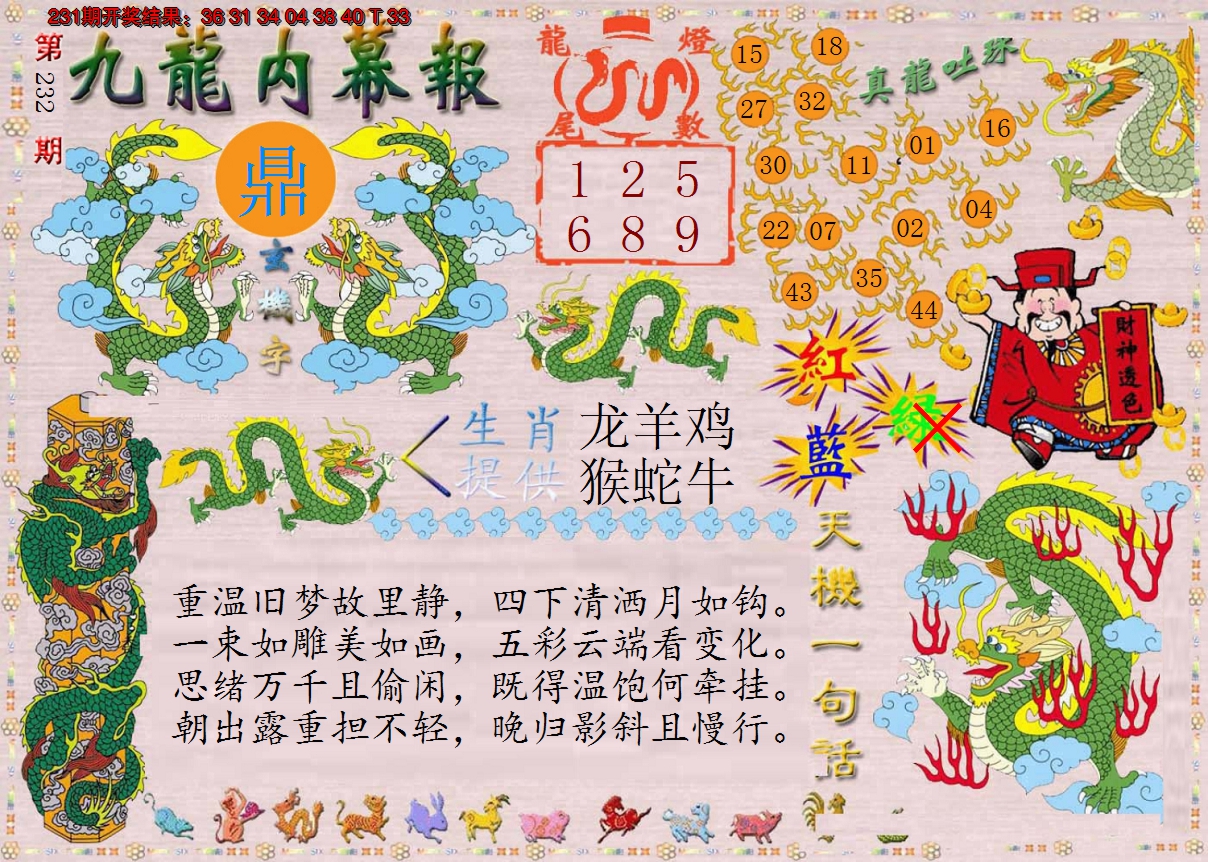 231期开奖结果：36 31 34 04 38 40 T 33
第232期
九龍内幕報
鼎
玄機字
龍燈
尾數
1 2 5
6 8 9
真龍吐珠
15
18
27
32
30
11
01
16
22
07
02
04
43
35
44
紅
綠
藍
財神透色
生肖
提供
龙羊鸡
猴蛇牛
天機一句话
重温旧梦故里静，四下清洒月如钩。
一束如雕美如画，五彩云端看变化。
思绪万千且偷闲，既得温饱何牵挂。
朝出露重担不轻，晚归影斜且慢行。